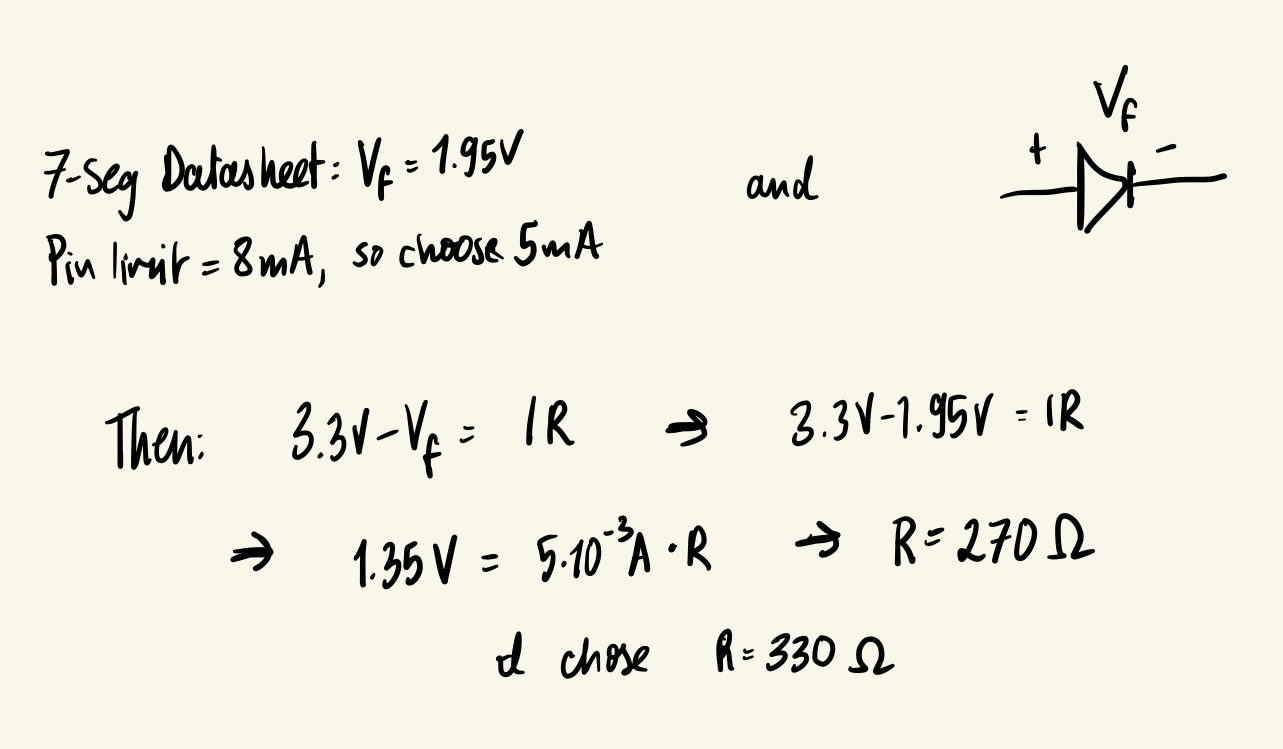 V_f
+ -
7-Seg Datasheet: V_f = 1.95V and
Pin limit = 8mA, so choose 5mA
Then: 3.3V - V_f = IR → 3.3V - 1.95V = IR
→ 1.35V = 5·10⁻³A · R → R = 270 Ω
I chose R = 330 Ω